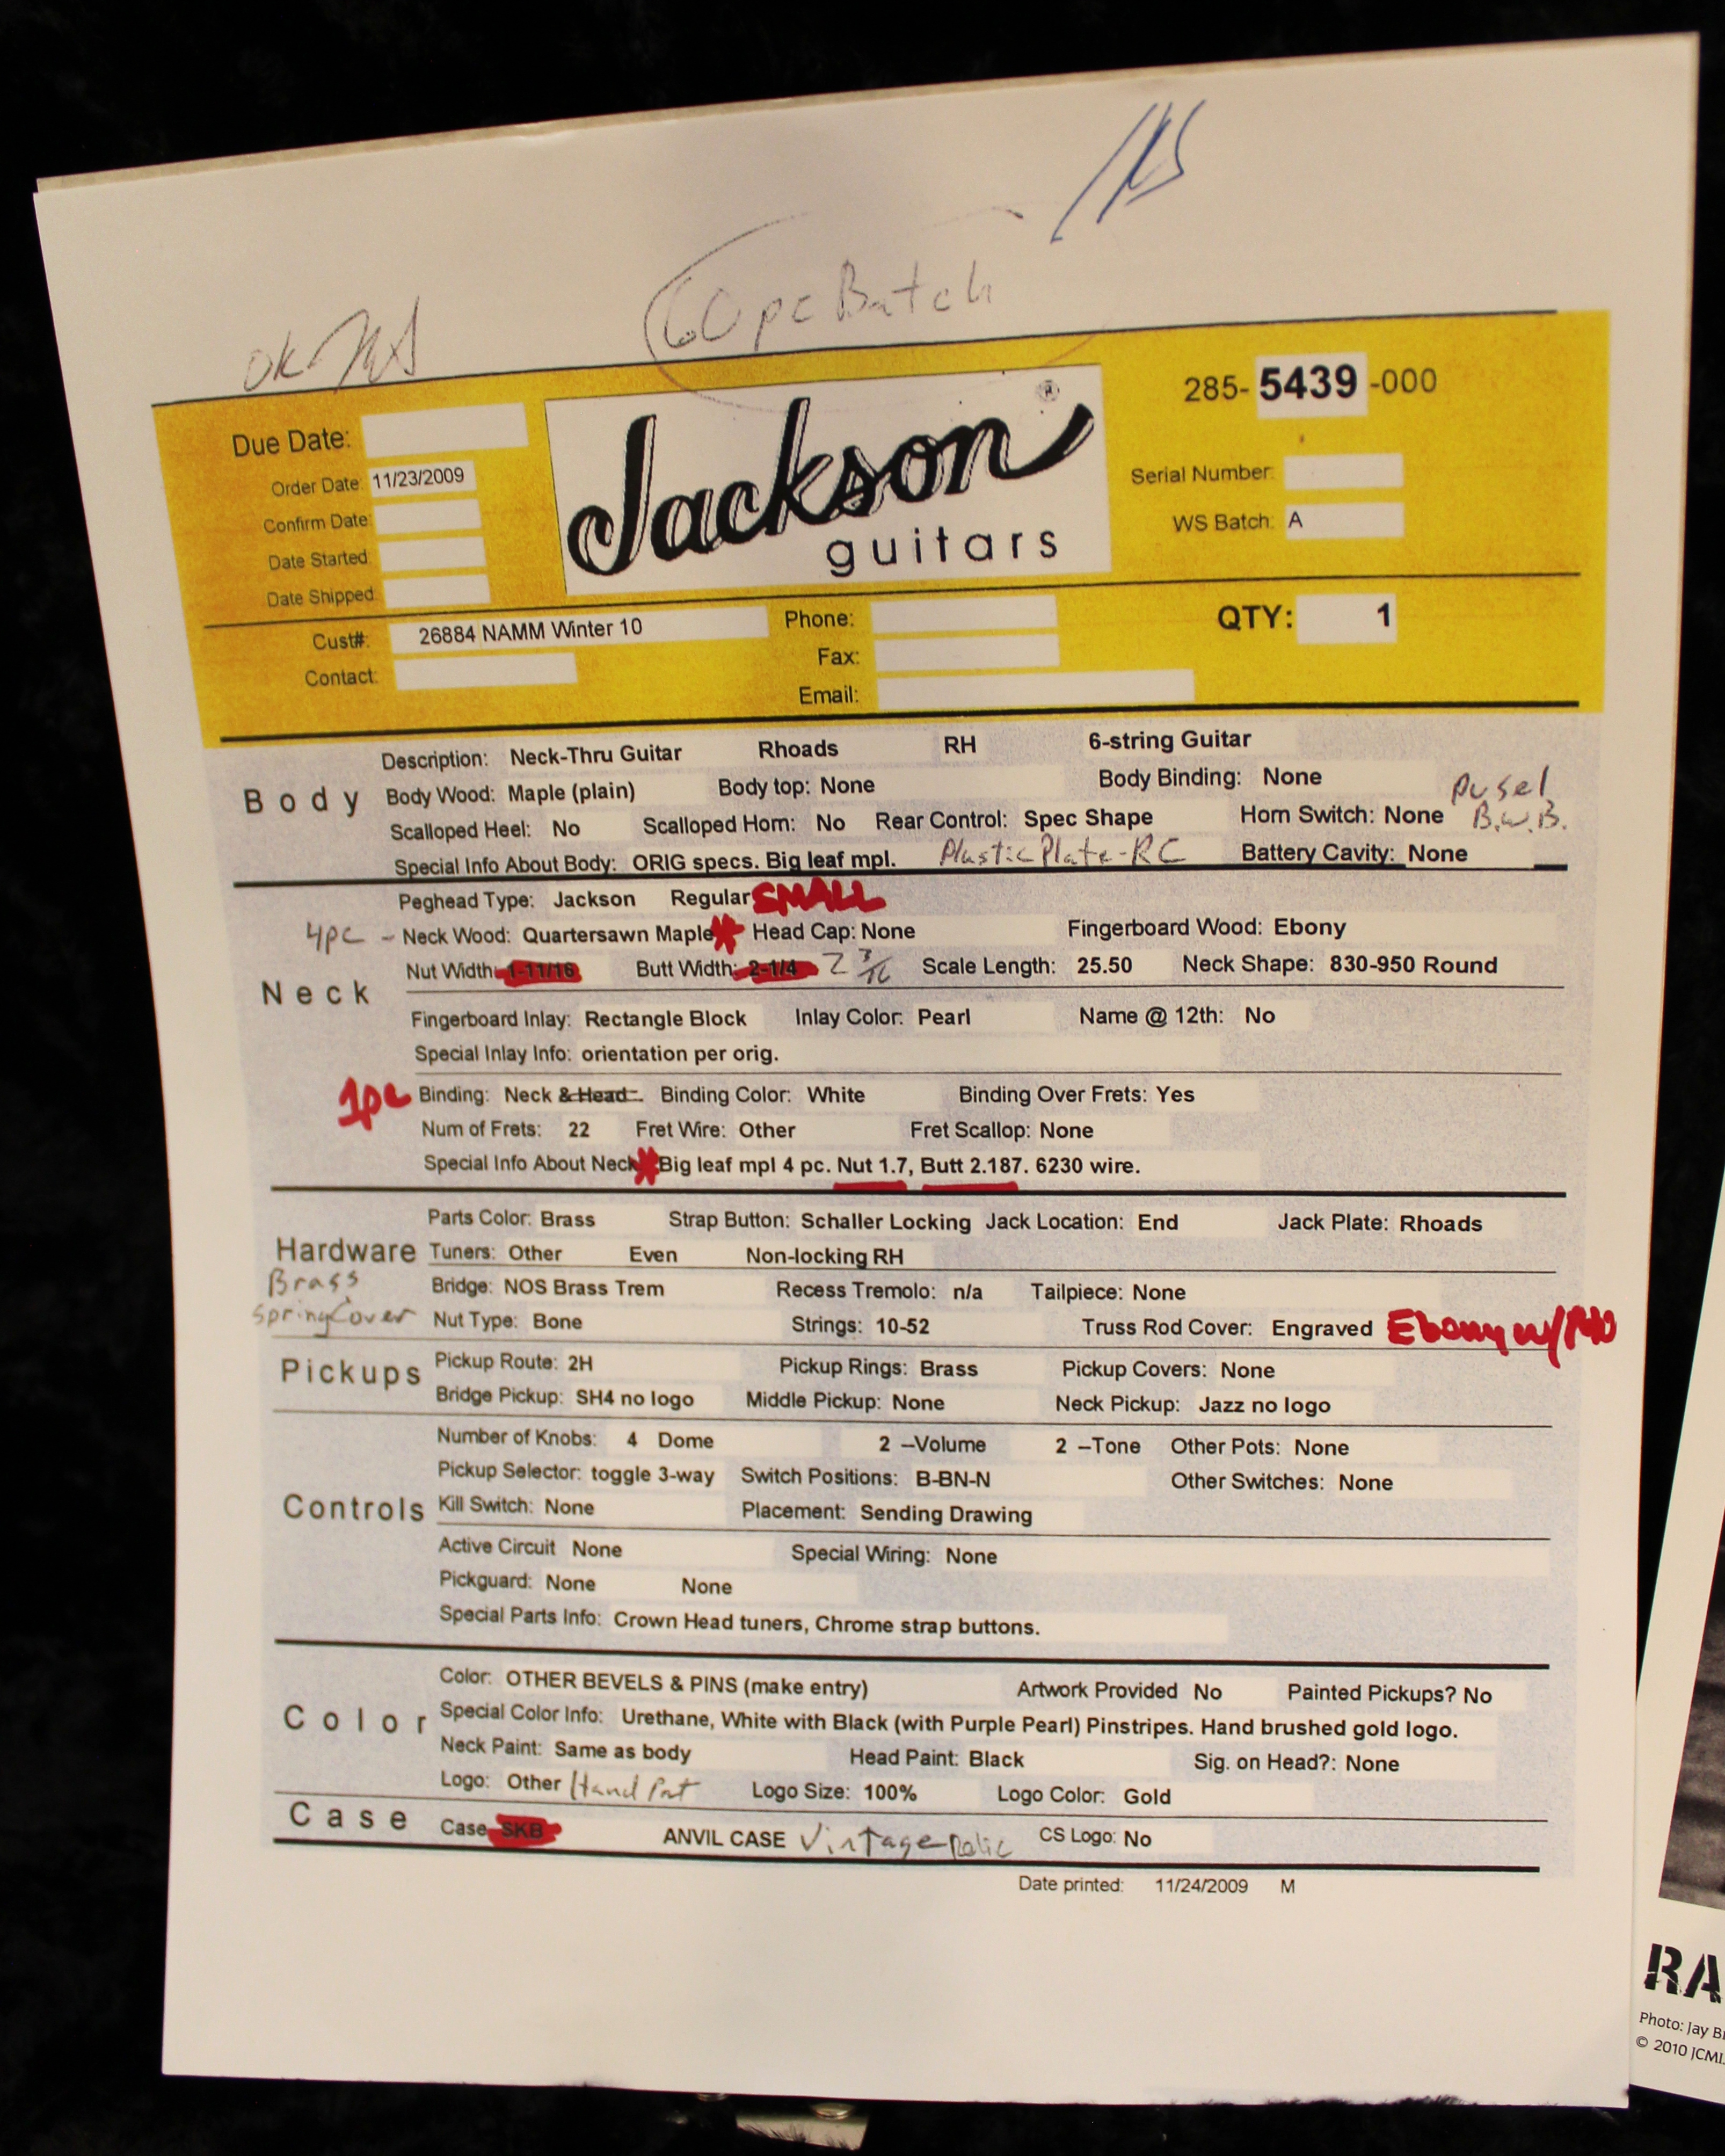 60 pc Batch
OK
Due Date:
Order Date: 11/23/2009
Confirm Date:
Date Started:
Date Shipped:
Jackson ®
guitars
285- 5439 -000
Serial Number:
WS Batch: A
Cust#: 26884 NAMM Winter 10
Contact:
Phone:
Fax:
Email:
QTY: 1
Body
Description: Neck-Thru Guitar Rhoads RH 6-string Guitar
Body Wood: Maple (plain) Body top: None Body Binding: None
Scalloped Heel: No Scalloped Horn: No Rear Control: Spec Shape Horn Switch: None B.W.B.
Special Info About Body: ORIG specs. Big leaf mpl. Plastic Plate-RC Battery Cavity: None
Neck
Peghead Type: Jackson Regular SMALL
4pc - Neck Wood: Quartersawn Maple * Head Cap: None Fingerboard Wood: Ebony
Nut Width: 1-11/16 Butt Width: 2-1/4 2 3/16 Scale Length: 25.50 Neck Shape: 830-950 Round
Fingerboard Inlay: Rectangle Block Inlay Color: Pearl Name @ 12th: No
Special Inlay Info: orientation per orig.
1pc Binding: Neck & Head Binding Color: White Binding Over Frets: Yes
Num of Frets: 22 Fret Wire: Other Fret Scallop: None
Special Info About Neck * Big leaf mpl 4 pc. Nut 1.7, Butt 2.187. 6230 wire.
Hardware
Parts Color: Brass Strap Button: Schaller Locking Jack Location: End Jack Plate: Rhoads
Tuners: Other Even Non-locking RH
Brass
Spring Cover
Bridge: NOS Brass Trem Recess Tremolo: n/a Tailpiece: None
Nut Type: Bone Strings: 10-52 Truss Rod Cover: Engraved Ebony w/
Pickups
Pickup Route: 2H Pickup Rings: Brass Pickup Covers: None
Bridge Pickup: SH4 no logo Middle Pickup: None Neck Pickup: Jazz no logo
Controls
Number of Knobs: 4 Dome 2 –Volume 2 –Tone Other Pots: None
Pickup Selector: toggle 3-way Switch Positions: B-BN-N Other Switches: None
Kill Switch: None Placement: Sending Drawing
Active Circuit None Special Wiring: None
Pickguard: None None
Special Parts Info: Crown Head tuners, Chrome strap buttons.
Color
Color: OTHER BEVELS & PINS (make entry) Artwork Provided No Painted Pickups? No
Special Color Info: Urethane, White with Black (with Purple Pearl) Pinstripes. Hand brushed gold logo.
Neck Paint: Same as body Head Paint: Black Sig. on Head?: None
Logo: Other Hand Logo Size: 100% Logo Color: Gold
Case
Case SKB ANVIL CASE Vintage Relic CS Logo: No
Date printed: 11/24/2009 M
RA
Photo: Jay
© 2010 JCMI.